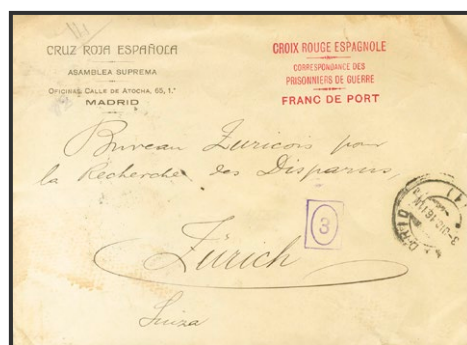 CRUZ ROJA ESPAÑOLA
ASAMBLEA SUPREMA
OFICINAS, CALLE DE ATOCHA, 65, 1.º
MADRID
CROIX ROUGE ESPAGNOLE
CORRESPONDANCE DES
PRISONNIERS DE GUERRE
FRANC DE PORT
Bureau Zuricois pour
la Recherche des Disparus,
3
Zürich
Suiza